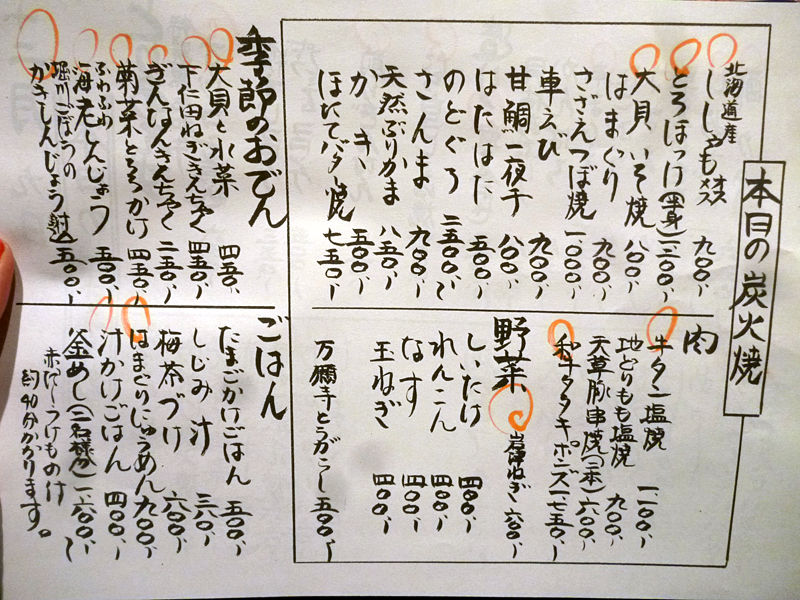 本日の炭火焼
北海道産
ししゃも オス メス 九〇〇、
とろほっけ(半身) 一、二〇〇、
大貝いそ焼 八〇〇、
はまぐり 九〇〇、
さざえつぼ焼 一、〇〇〇、
車えび 九〇〇、
甘鯛一夜干 八〇〇、
はたはた 五〇〇、
のどぐろ 二、五〇〇、〜
さんま 九〇〇、
天然ぶりかま 八五〇、
かき 五〇〇、
ほたてバター焼 七五〇、
肉
牛タン塩焼 一、一〇〇、
地どりもも塩焼 九〇〇、
天草豚串焼(二本) 六〇〇、
和牛タタキ。ポンズ 一、七五〇、
野菜
岩津ねぎ 六〇〇、
しいたけ 四〇〇、
れんこん 四〇〇、
なす 四〇〇、
玉ねぎ 四〇〇、
万願寺とうがらし 五〇〇、
季節のおでん
大貝と水菜 四五〇、
下仁田ねぎきんちゃく 四五〇、
ぎんなんきんちゃく 三五〇、
菊菜とろろかけ 四五〇、
ふわふわ
海老しんじょう 五〇〇、
堀川ごぼうの
かきしんじょう射込 五〇〇、
ごはん
たまごかけごはん 五〇〇、
しじみ汁 三〇〇、
梅茶づけ 六〇〇、
はまぐりにゅうめん 九〇〇、
汁かけごはん 四〇〇、
釜めし(二名様分) 一、六〇〇、〜
赤だし つけもの付
約40分かかります。